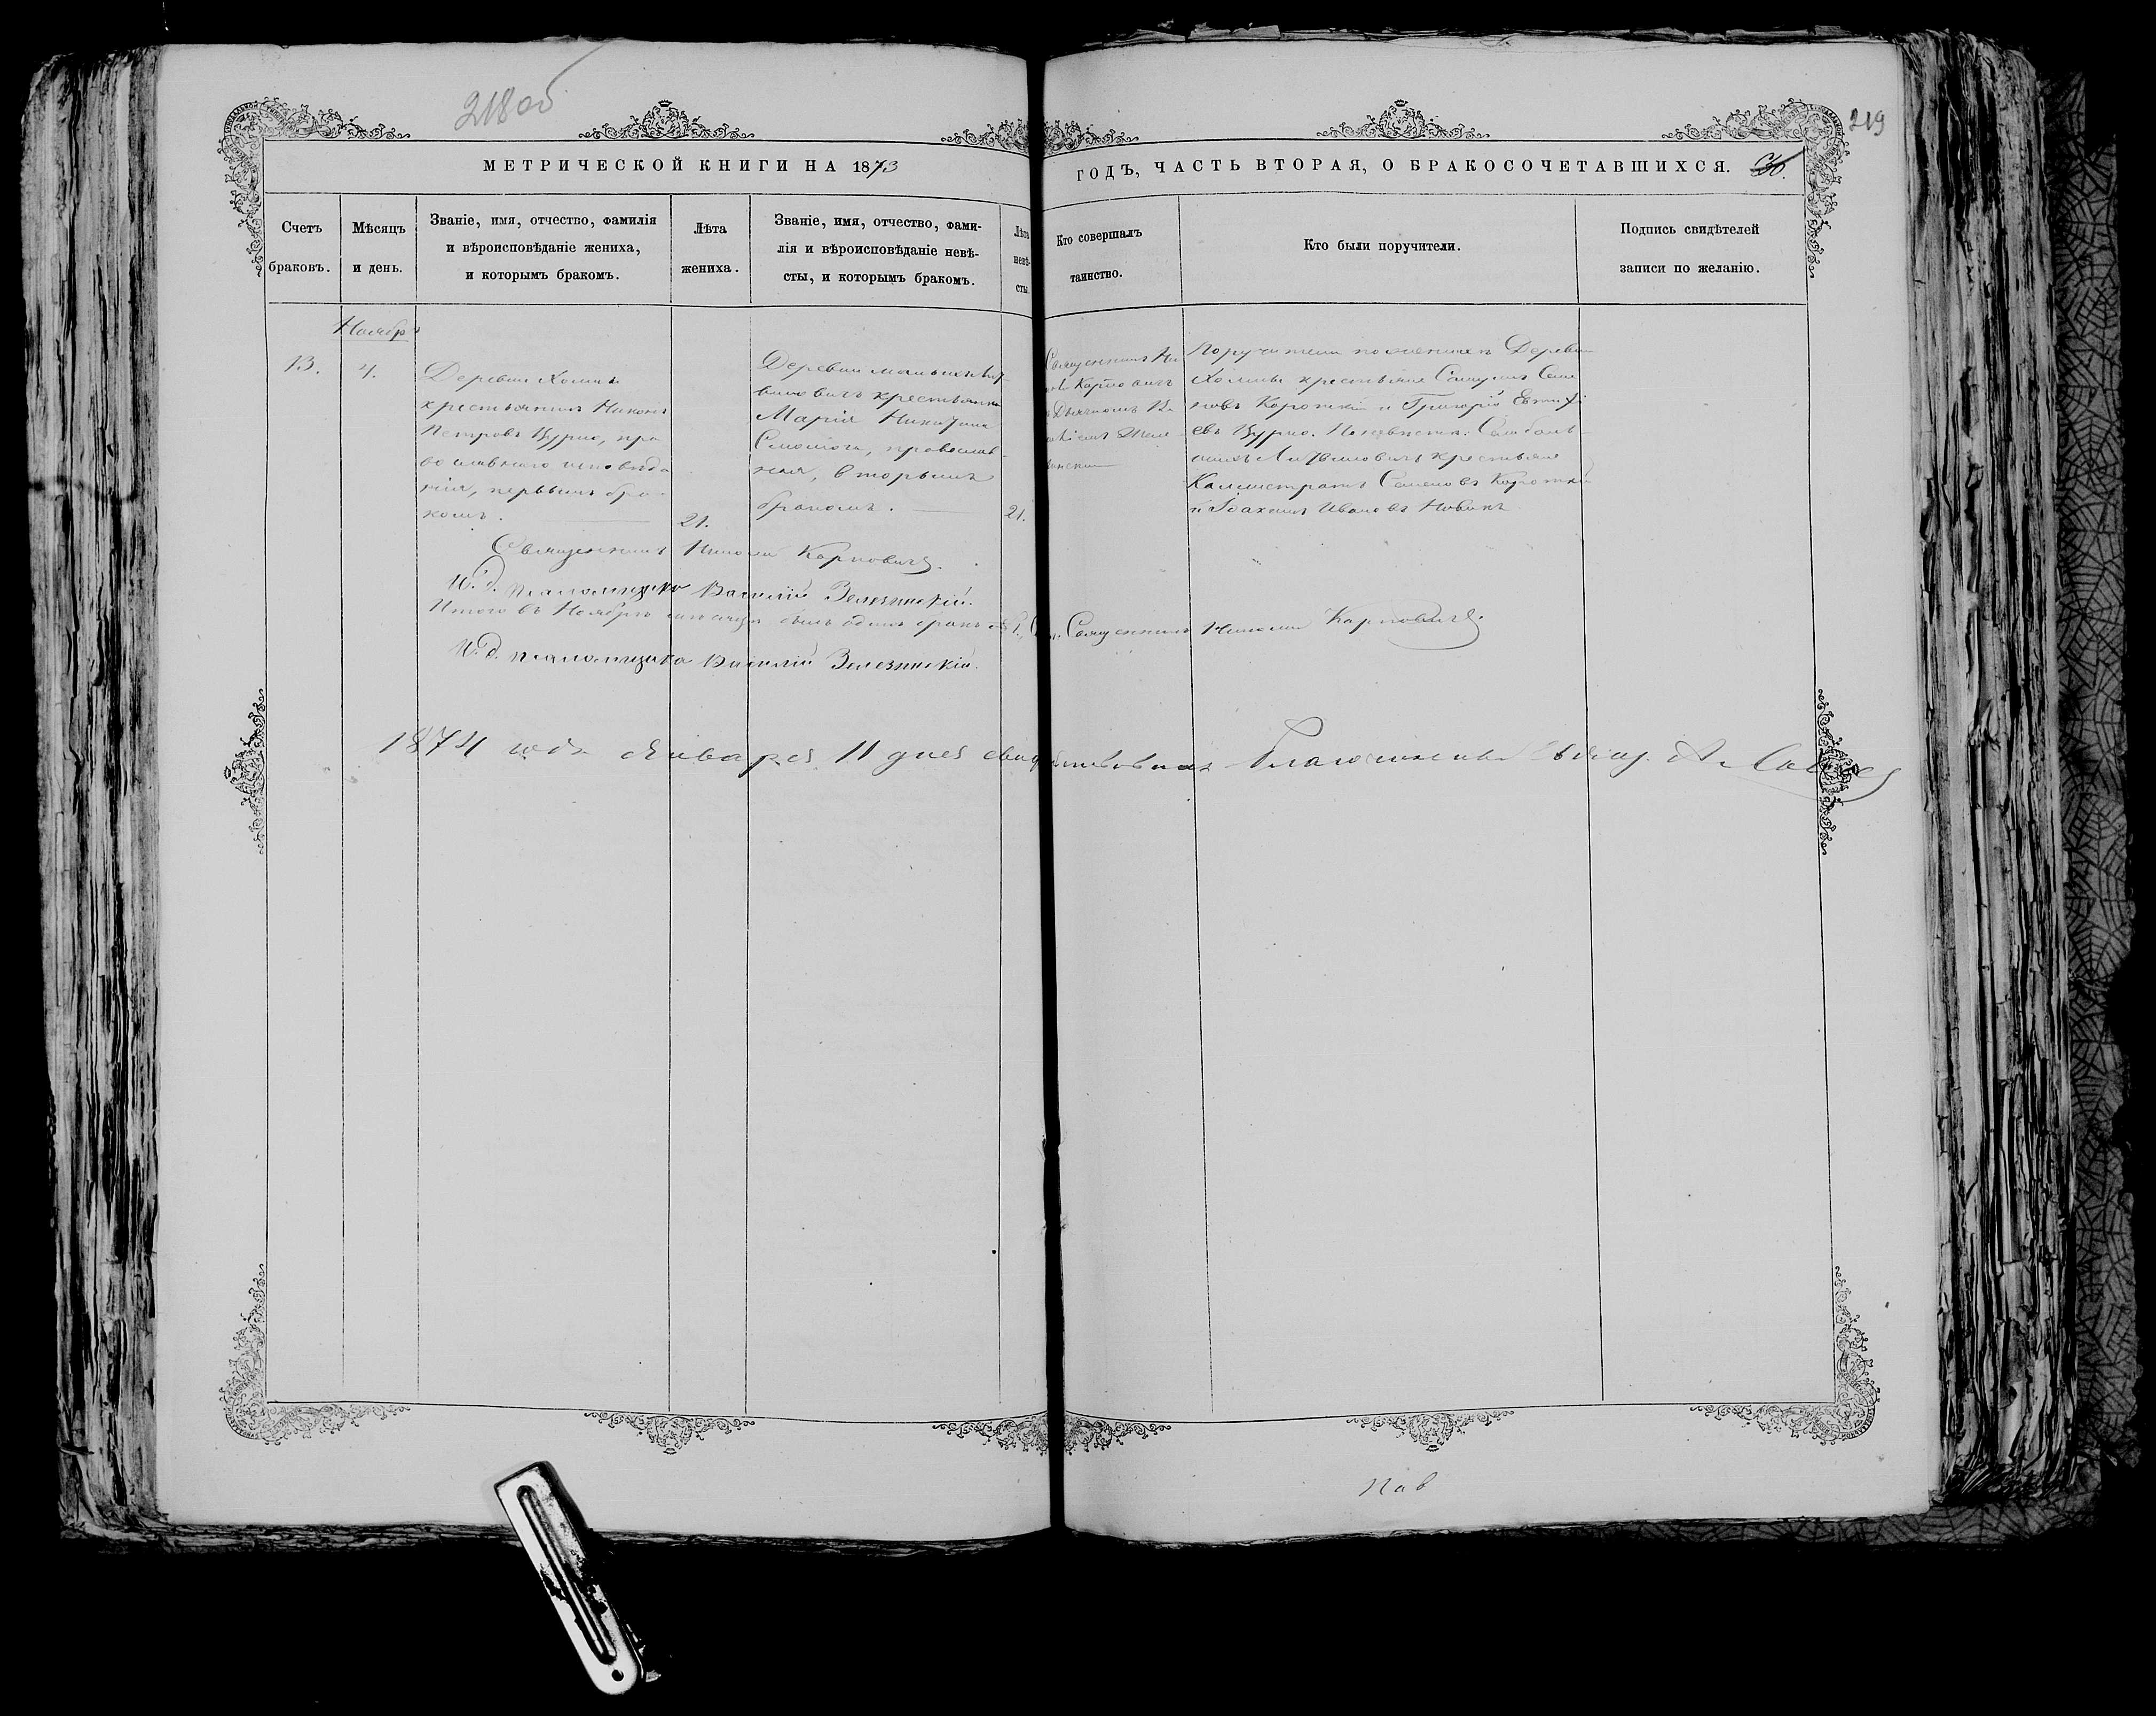 218 об
219
МЕТРИЧЕСКОЙ КНИГИ НА 1873
ГОДЪ, ЧАСТЬ ВТОРАЯ, О БРАКОСОЧЕТАВШИХСЯ.
Счетъ
браковъ.
Мѣсяцъ
и день.
Званіе, имя, отчество, фамилія
и вѣроисповѣданіе жениха,
и которымъ бракомъ.
Лѣта
жениха.
Званіе, имя, отчество, фами-
лія и вѣроисповѣданіе невѣ-
сты, и которымъ бракомъ.
Лѣта
невѣ-
сты.
Кто совершалъ
таинство.
Кто были поручители.
Подпись свидѣтелей
записи по желанію.
Ноябрь
13.
4.
Деревни Холмы
крестьянинъ Никонъ
Петровъ Цурко, пра
вославнаго исповѣда
нія, первымъ бра-
комъ.
21.
Деревни
крестьянка
Марія
православ-
ная, вторымъ
бракомъ.
21.
Священникъ Ни
Поручители по женихѣ Деревни
Холмы крестьяне Самуилъ Семе
новъ Короткій и Григорій Евтихі
евъ Цурко. По невѣстѣ:
крестьяне
Каллистратъ Семеновъ Короткій
и Іоакимъ Ивановъ Новикъ
Священникъ Николай Карповичъ.
И. д. псаломщика Василій Зелезинскій.
Итого въ Ноябрѣ мѣсяцѣ былъ одинъ бракъ
Священникъ Николай Карповичъ.
И. д. псаломщика Василій Зелезинскій.
1874 года Января 11 дня свидѣтельствовалъ Благочинный Свящ.
Пав